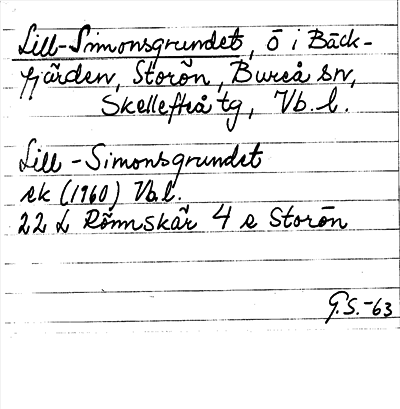 Lill-Simonsgrundet, ö i Bäck-
fjärden, Storön, Bureå sn,
Skellefteå tg, Vb. l.
Lill-Simonsgrundet
ek (1960) Vb.l.
22 L Rönnskär 4 e Storön
G.S.-63